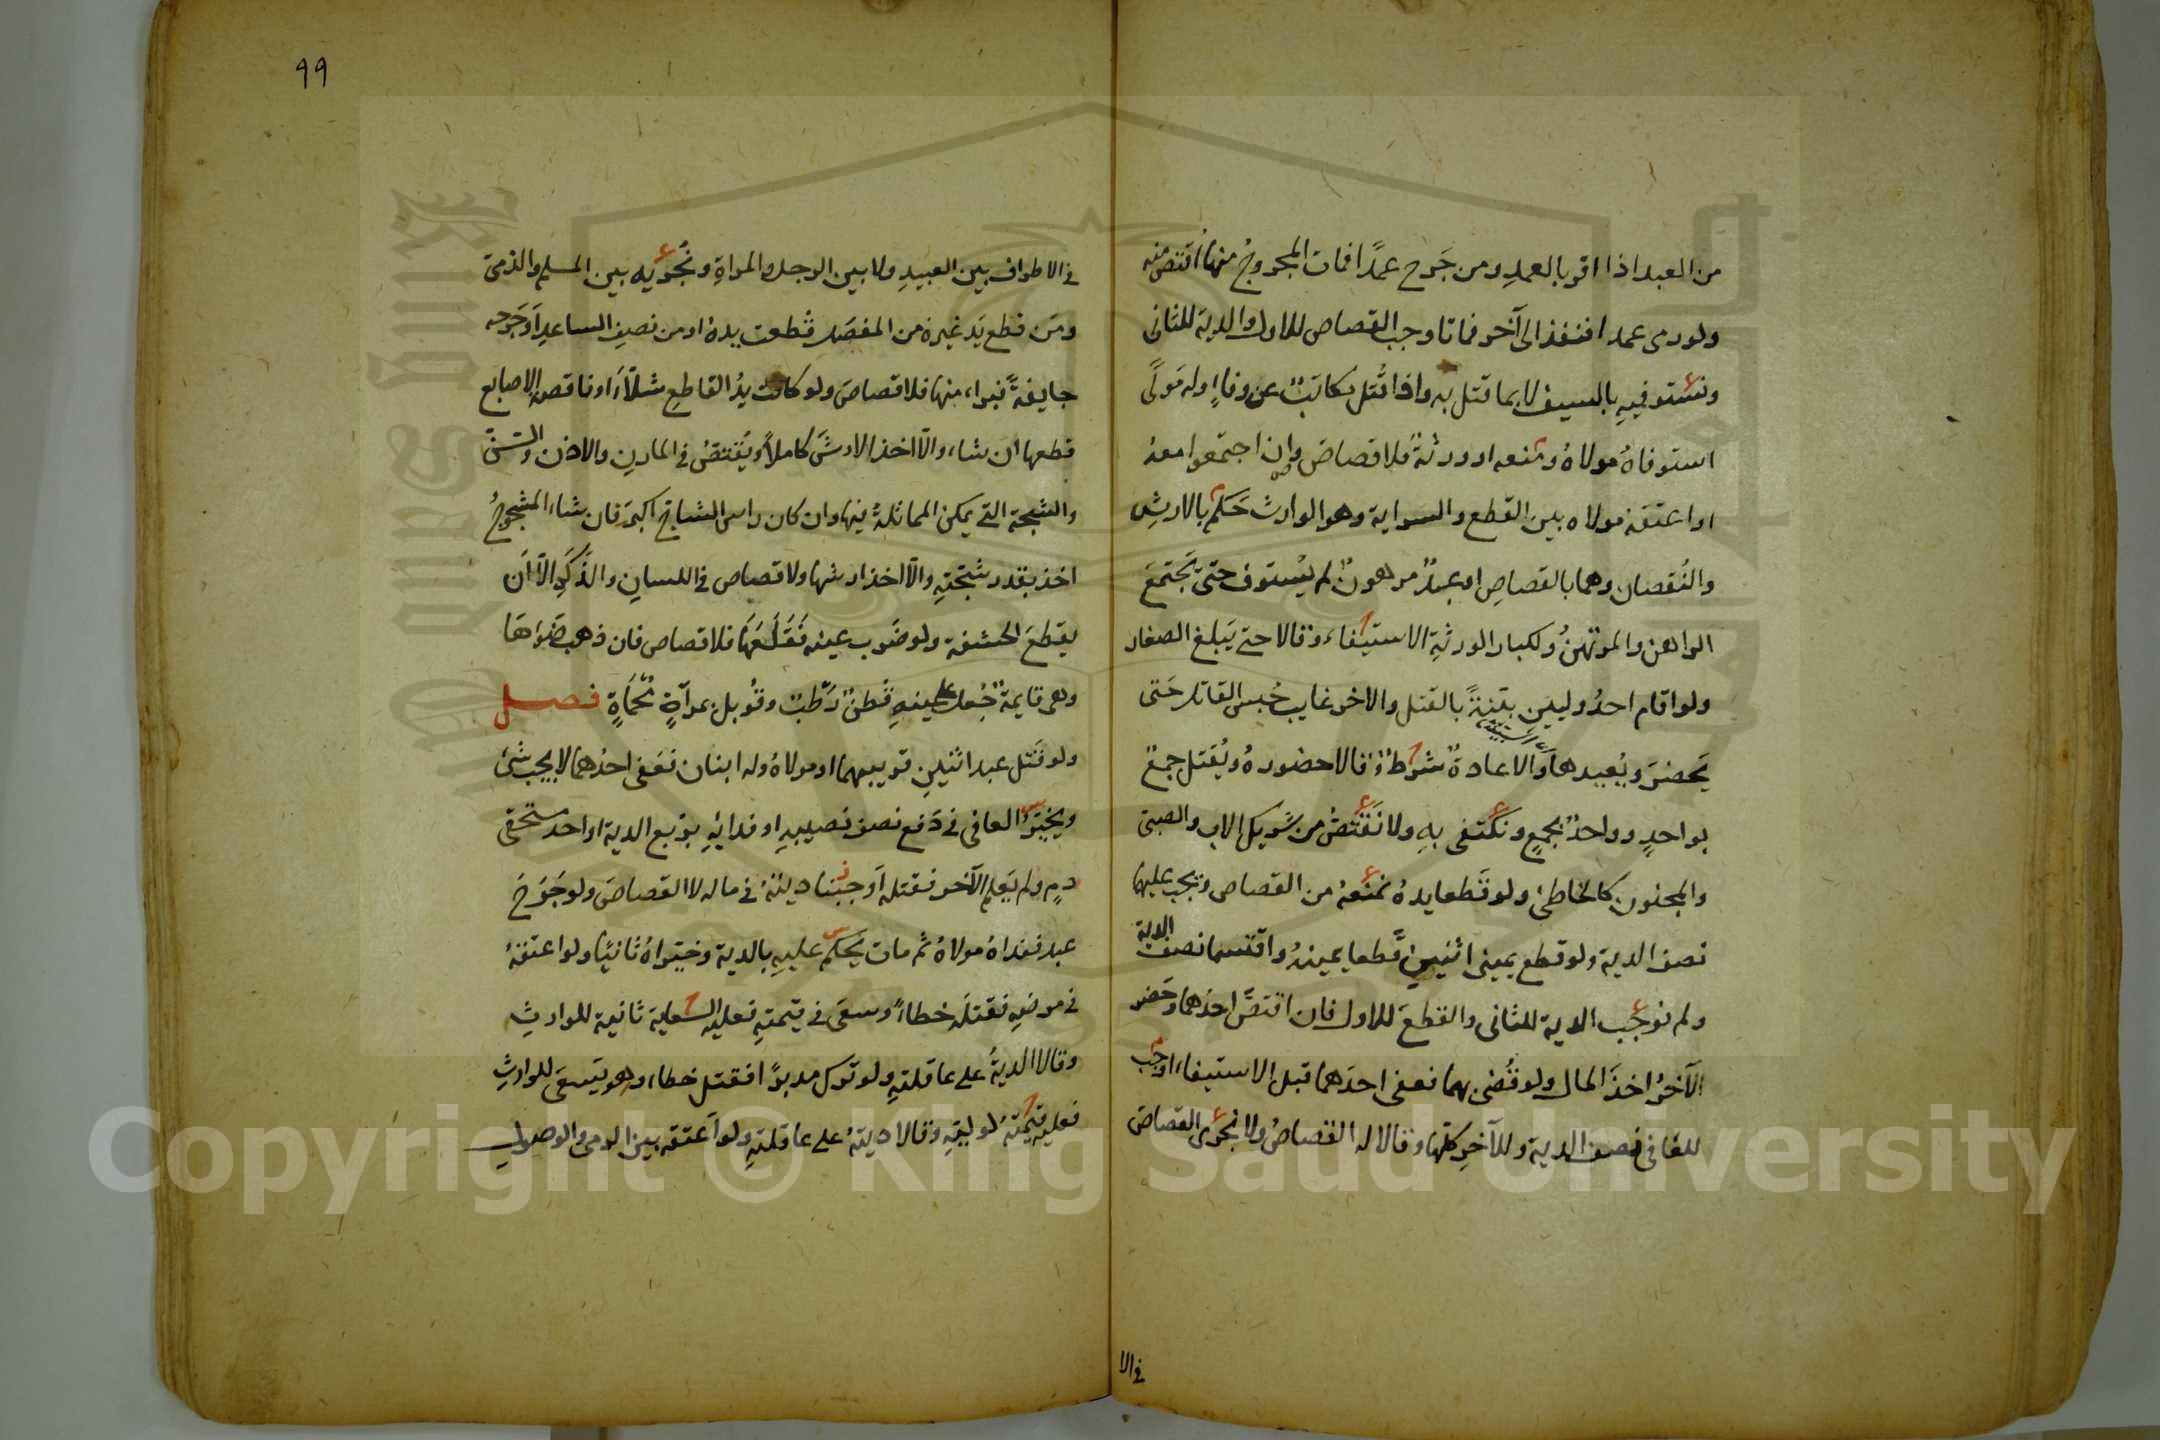 من العبد اذا اقر بالعمدِ ومن جَرح عمدًا فمات المجروحُ منها اُقتصّ منه
ولو رمى عمدا فنفذ الى آخر فماتا وجب القصاص للاول والدية للثانى
ونستوفيهِ بالسيف لا بما قتل به واذا قُتل مكاتبٌ عن وفاءٍ وله مَولًى
استوفاهُ مولاهُ ومنعه او ورثةً فلا قصاصَ وان اجتمعوا معهُ
او اعتقه مولاه بين القطع والسراية وهو الوارث حَكم بالارشِ
والنُقصان وهما بالقصاصِ او عبدٌ مرهونٌ لم يُستوف حتى يَجتمعَ
الراهن والمرتهنُ ولكبار الورثةِ الاستيفاء وقالا حتى يَبلغ الصغار
ولو اقام احدُ وليينِ بيّنةً بالقتل والاخر غايب حُبس القاتل حَتى
يَحضرَ ويُعيدها والاعادةُ شرطٌ وقالا حضورهُ ويُقتل جمعٌ
بواحدٍ وواحدٌ بجمعٍ ونكتفى بهِ ولا نَقتصُّ من شريك الاب والصبىّ
والمجنون كالخاطئ ولو قَطعا يدهُ نمنعهُ من القصاص ويجب عليهما
نصف الدية ولو قطع يمينى اثنين قَطعا يمينهُ واقتسما نصف الدية
ولم نوجب الدية للثانى والقطعَ للاول فان اقتصّ احدهما وحَضر
الآخرُ اخذَ المال ولو قُضى بهما فعفى احدَهما قبل الاستيفاء اوجب
للعافى نصف الدية وللآخرِ كلّها وقالا له القصاصُ ولا نُجرى القصاصَ
فى الا
٩٩
فى الاطراف بين العبيدِ ولا بين الرجل والمراةِ ونُجريه بين المسلم والذمىّ
ومَن قطع يَد غيره من المفصَل قُطعت يدهُ او من نصف الساعدِ اَو جَرحه
جايفةً فبراء منها فلا قصاصَ ولو كانت يدُ القاطعِ شلّاءَ او ناقصة الاصابع
قطعها ان شاء والّا اخذ الارشَ كاملًا ويُقتصّ فى المارنِ والاذن والسّنّ
والشجة التى يمكن المماثلةُ فيها وان كان راس الشاجّ اكبرَ فان شاء المشجوجُ
اخذ بقدر شجّتهِ والّا اخذ ارشها ولا قصاص فى اللسانِ والذَكَرِ الّا اَن
يقطعَ الحشفة ولو ضَرب عينه فَقَلَعَهَا فلا قصاص فان ذهب ضَوءها
وهى قايمةٌ جُعل على عينهِ قُطنٌ رَطبٌ وقُوبل بمرآةٍ مُحماةٍ فصل
ولو قَتل عبد اثنينِ قريبهما او مولاهُ وله ابنان فعَفى احدُهما لا يجب شَئ
ويخيّرُ العافى فى دَفع نصف نصيبهِ او فدائهِ بربع الدية او احد مستحقى
دمٍ ولم يَعلم الآخر فقتله اَوجبنا ديتهُ فى ماله لا القصاصَ ولو جَرَحَ
عبد ففداهُ مولاهُ ثم مات يَحكم عليهِ بالدية وخيّراهُ ثانيًا ولو اعتقهُ
فى مرضهِ فقتلَه خطاءً وسعَى فى قيمتهِ فعليه السعاية ثانية للوارثِ
وقالا الديةُ على عاقلتهِ ولو ترك مدبرًا فقتل خطاء وهو يَسعَى للوارثِ
فعليه قيمتهُ لوليّهِ وقالا ديتهُ على عاقلتهِ ولو اَعتقه بين الرمى والوصولِ